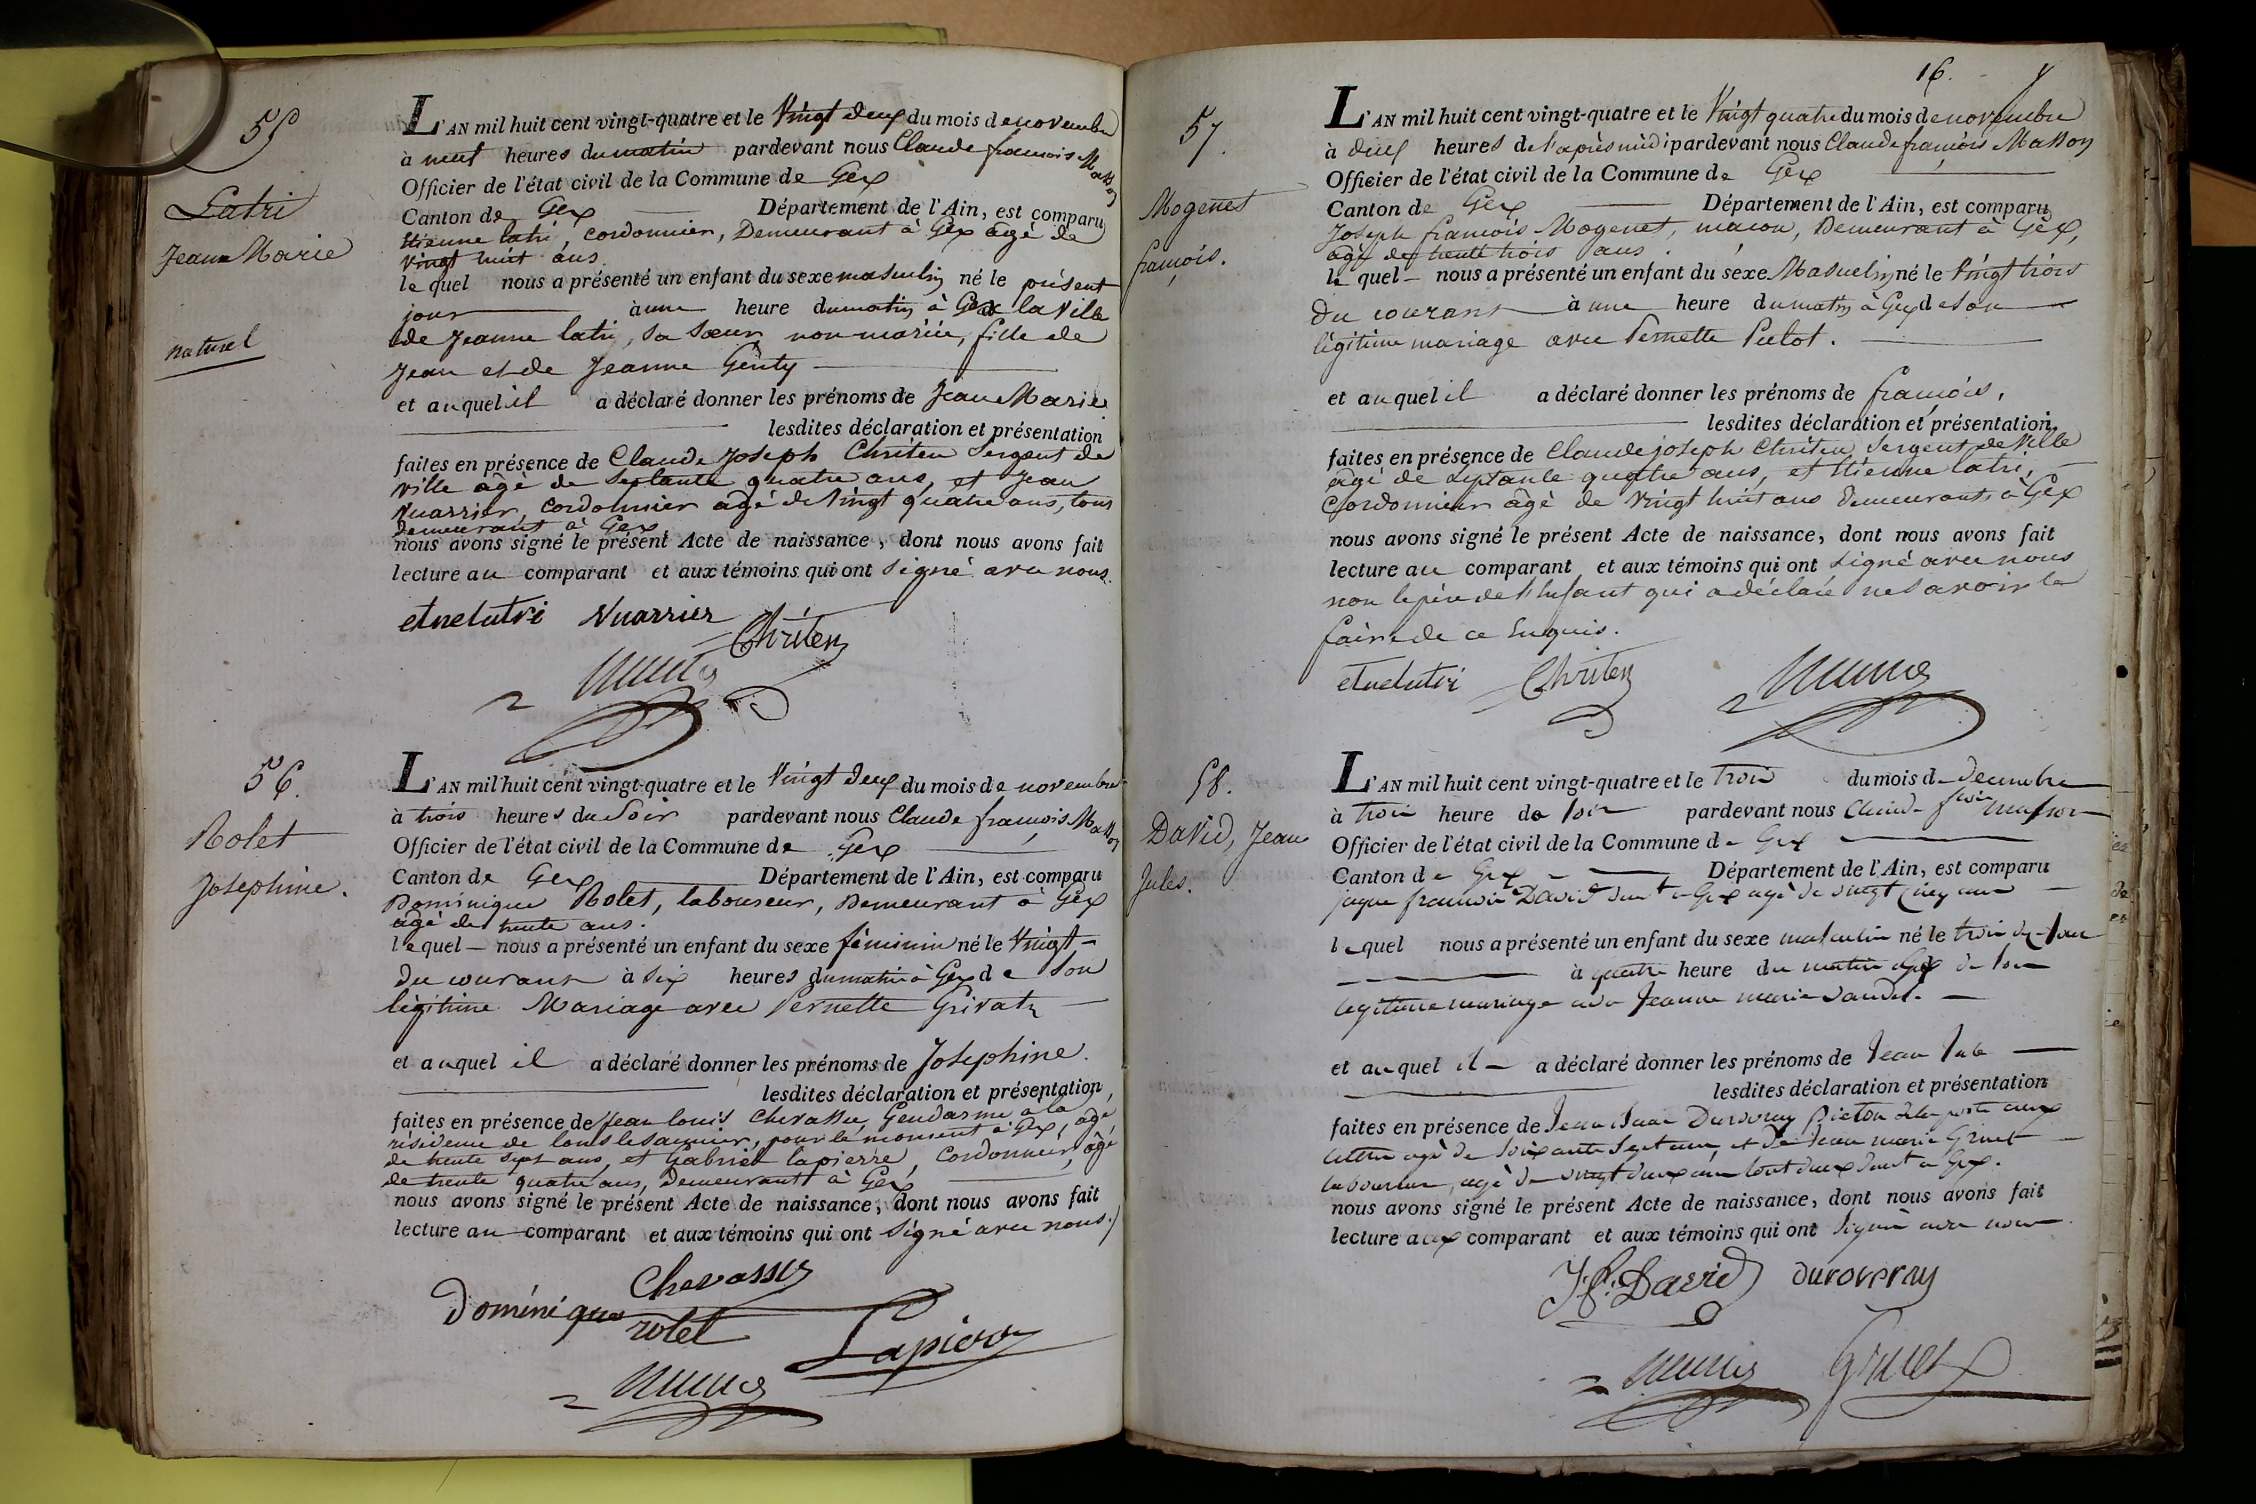 55
Latri
Jean Marie
naturel
L'AN mil huit cent vingt-quatre et le Vingt deux du mois de novembre
à neuf heures du matin pardevant nous Claude françois Masson
Officier de l'état civil de la Commune de Gex
Canton de Gex Département de l'Ain, est comparu
Etienne latri, cordonnier, Demeurant à Gex agé de
vingt huit ans
lequel nous a présenté un enfant du sexe masculin né le présent
jour à une heure du matin à Gex la Ville
de Jeanne latri, sa sœur non mariée, fille de
Jean et de Jeanne Genty
et auquel il a déclaré donner les prénoms de Jean Marie
lesdites déclaration et présentation
faites en présence de Claude Joseph Chriten Sergent de
ville agé de Septante quatre ans, et Jean
Vuarrier, cordonnier agé de Vingt quatre ans, tous
demeurant à Gex
nous avons signé le présent Acte de naissance, dont nous avons fait
lecture au comparant et aux témoins qui ont signé avec nous.
etnelatri Vuarrier
Chriten
56.
Rolet
Josephine.
L'AN mil huit cent vingt-quatre et le Vingt deux du mois de novembre
à trois heures du Soir pardevant nous Claude françois Masson
Officier de l'état civil de la Commune de Gex
Canton de Gex Département de l'Ain, est comparu
Dominique Rolet, laboureur, Demeurant à Gex
agé de trente ans.
lequel nous a présenté un enfant du sexe féminin né le Vingt
du courant à six heures du matin à Gex de son
légitime Mariage avec Pernette Grivat
et auquel il a déclaré donner les prénoms de Josephine.
lesdites déclaration et présentation,
faites en présence de Jean louis Chevassu, Gendarme à la
résidence de lons le Saunier, pour le moment à Gex, agé
de trente sept ans, et Gabriel lapierre, cordonnier, âgé
de trente quatre ans, Demeurants à Gex
nous avons signé le présent Acte de naissance, dont nous avons fait
lecture au comparant et aux témoins qui ont signé avec nous.
Chevassus
Doménique
rolet
Lapierre
16.
57.
Mogenet
françois.
L'AN mil huit cent vingt-quatre et le Vingt quatre du mois de novembre
à deux heures de l'après midi pardevant nous Claude françois Masson
Officier de l'état civil de la Commune de Gex
Canton de Gex Département de l'Ain, est comparu
Joseph françois Mogenet, maçon, Demeurant à Gex,
agé de trente trois ans.
lequel nous a présenté un enfant du sexe Masculin né le Vingt trois
du courant à une heure du matin à Gex de son
légitime mariage avec Pernette Pelot.
et auquel il a déclaré donner les prénoms de françois,
lesdites déclaration et présentation,
faites en présence de Claude joseph Chriten, Sergent de Ville
agé de Septante quatre ans, et Etienne latri,
Cordonnier agé de Vingt huit ans Demeurants à Gex
nous avons signé le présent Acte de naissance, dont nous avons fait
lecture au comparant et aux témoins qui ont signé avec nous
non le père de l'Enfant qui a déclaré ne savoir le
faire de ce Enquis.
etnelatri Chriten
58.
David, Jean
Jules.
L'AN mil huit cent vingt-quatre et le trois du mois de decembre
à trois heure de soir pardevant nous Claude fcois masson
Officier de l'état civil de la Commune de Gex
Canton de Gex Département de l'Ain, est comparu
jaque francois David demt a Gex agé de vingt cinq ans
lequel nous a présenté un enfant du sexe masculin né le trois
à quatre heure du matin a Gex de son
legitime mariage avec Jeanne marie
et auquel il a déclaré donner les prénoms de Jean Jule
lesdites déclaration et présentation
faites en présence de Jean Isaac Duroveray pieton de la poste aux
lettres agé de soixante sept ans, et de Jean marie Gruet
laboureur, agé de vingt deux ans tout deux demt a Gex.
nous avons signé le présent Acte de naissance, dont nous avons fait
lecture aux comparant et aux témoins qui ont signé avec nous
J. f. David duroveray
Gruet